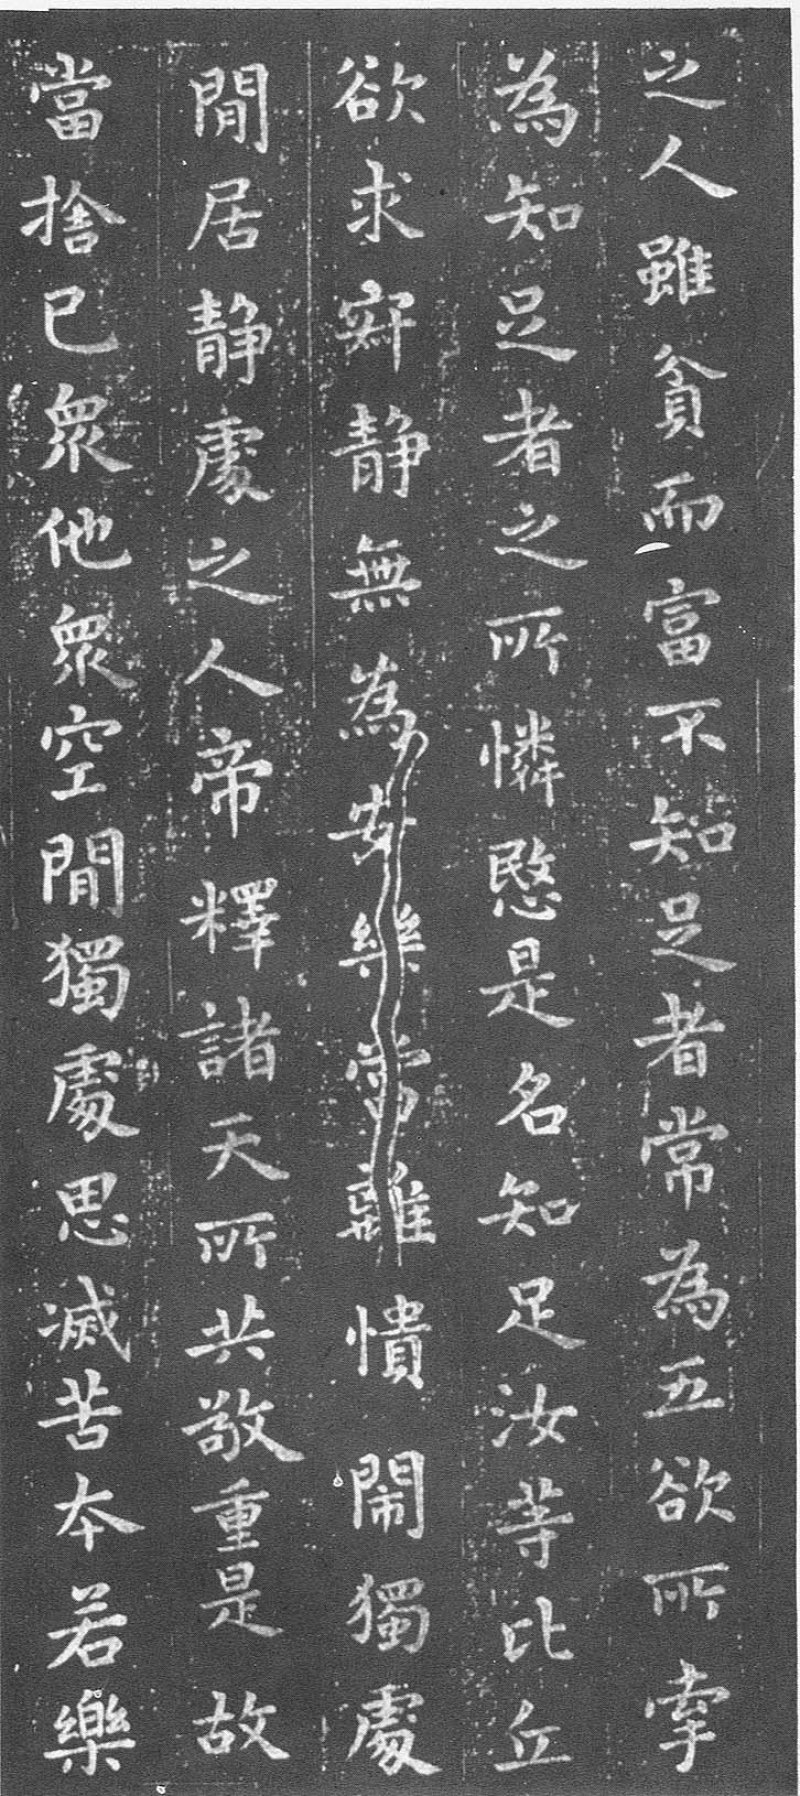 之人雖貧而富不知足者常為五欲所牽
為知足者之所憐愍是名知足汝等比丘
欲求寂静無為安樂當離憒閙獨處
閒居静處之人帝釋諸天所共敬重是故
當捨已眾他眾空閒獨處思滅苦本若樂